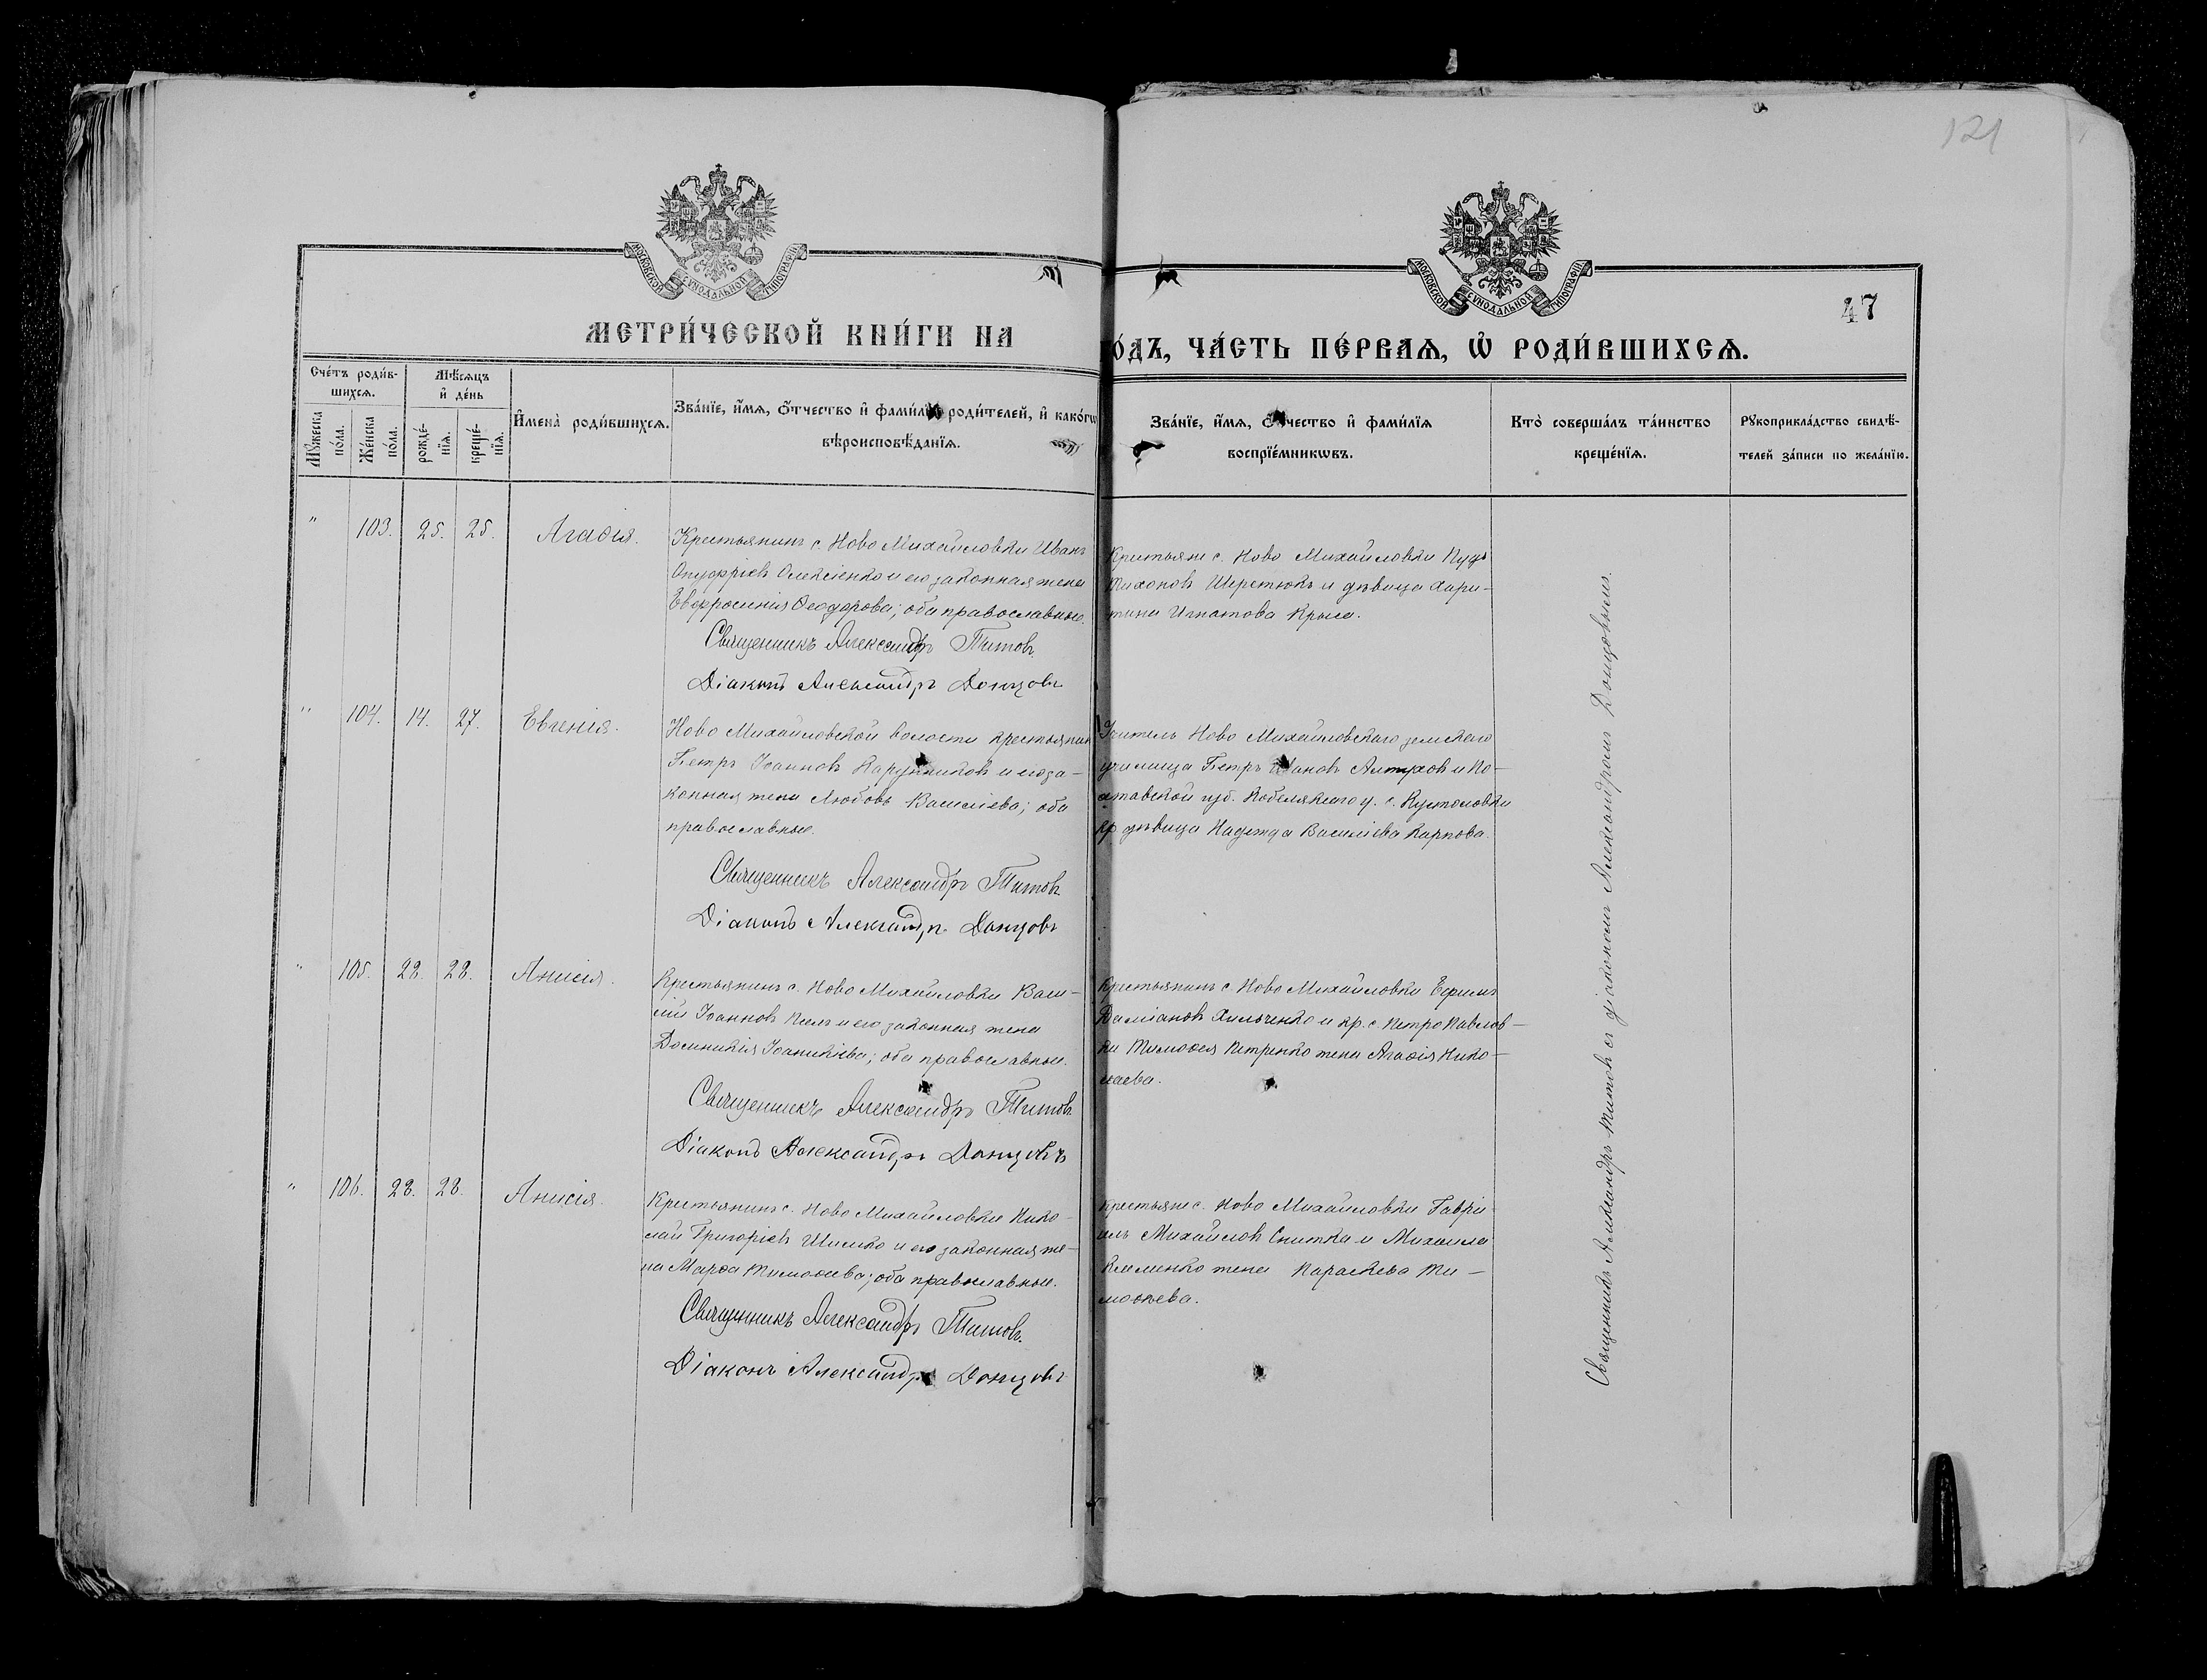 121
МОСКОВСКОЙ СѴНОДАЛЬНОЙ ТИПОГРАФІИ
МОСКОВСКОЙ СѴНОДАЛЬНОЙ ТИПОГРАФІИ
47
МЕТРИ́ЧЕСКОЙ КНИ́ГИ НА
ОДЪ, ЧА́СТЬ ПЕ́РВАѦ, Ѡ҆ РОДИ́ВШИХСѦ.
Сче́тъ роди́в-
шихсѧ.
Мѣ́сѧцъ
и҆ де́нь
Мꙋ́жеска
по́ла.
Же́нска
по́ла.
рожде́-
нїѧ.
креще́-
нїѧ.
И҆мена̀ роди́вшихсѧ.
Зва́нїе, и҆́мѧ, ѻ҆́тчество и҆ фами́лїѧ роди́телей, и҆ како́гѡ
вѣроисповѣ́данїѧ.
Зва́нїе, и҆́мѧ, ѻ҆́тчество и҆ фами́лїѧ
воспрїе́мникѡвъ.
Кто̀ соверша́лъ та́инство
креще́нїѧ.
Рꙋкоприкла́дство свидѣ́-
телей за́писи по жела́нїю.
" 103. 25. 25. Агаѳія.
Крестьянинъ с. Ново Михайловки Иванъ
Онуфріевъ Олексіенко и его законная жена
Евфросинія Ѳеодорова; оба православные.
Священникъ Александръ Титовъ.
Діаконъ Александръ Донцовъ
Крестьяне с. Ново Михайловки
Шеретюкъ и дѣвица Хари-
тина Игнатова Крыса.
" 104. 14. 27. Евгенія.
Ново Михайловской волости крестьянин
Петръ Іоанновъ и его за-
конная жена Любовь Василіева; оба
православные.
Священникъ Александръ Титовъ
Діаконъ Александръ Донцовъ
Учитель Ново Михайловскаго земскаго
училища Петръ Алтуховъ и По-
лтавской губ. Кобелякскаго у. с. Кустоловки
кр. дѣвица Надежда Василіева Карпова.
" 105. 28. 28. Анисія.
Крестьянинъ с. Ново Михайловки Васи-
лій Іоанновъ и его законная жена
Домникія Іоаникіева; оба православные.
Священникъ Александръ Титовъ
Діаконъ Александръ Донцовъ
Крестьянинъ с. Ново Михайловки Ефимъ
Даміановъ Хильченко и кр. с. Петропавлов-
ки Тимоѳея Петренко жена Агаѳія Нико-
лаева.
" 106. 28. 28. Анисія.
Крестьянинъ с. Ново Михайловки Нико-
лай Григоріевъ Шимко и его законная же-
на Марѳа Тимоѳеева; оба православные.
Священникъ Александръ Титовъ.
Діаконъ Александръ Донцовъ
Крестьяне с. Ново Михайловки Гаври-
илъ Михайловъ Снитка и Михаила
Клименко жена Параскева Ти-
моѳеева.
Священникъ Александръ Титовъ съ діакономъ Александромъ Донцовымъ.